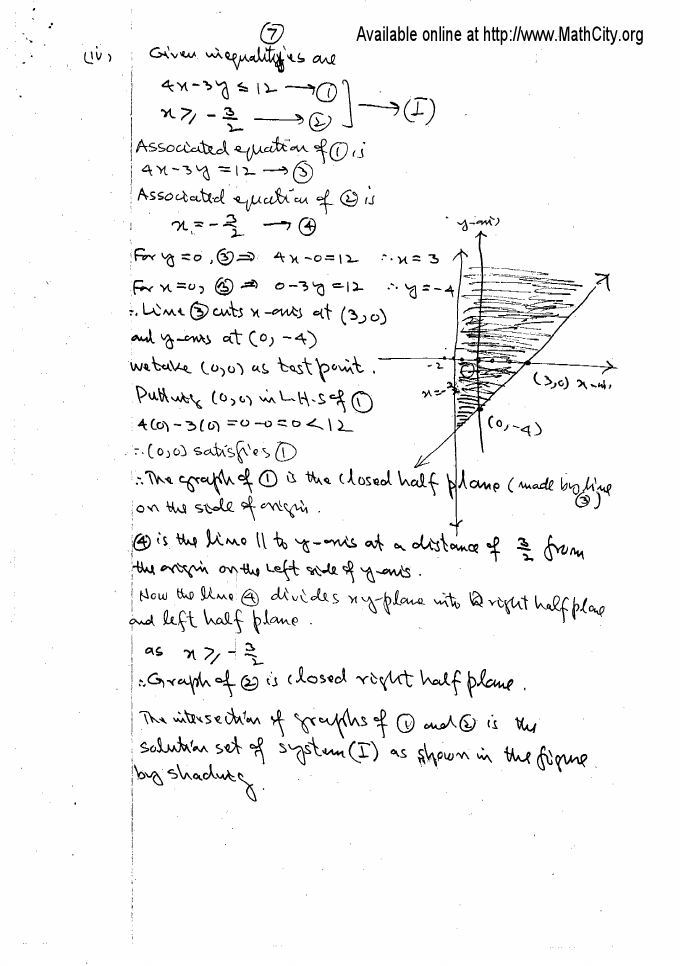 ⑦
Available online at http://www.MathCity.org
(iv) Given inequalityies are
4x-3y ≤ 12 → ①
x ≥ -3/2 → ②
→ (I)
Associated equation of ① is
4x-3y = 12 → ③
Associated equation of ② is
x = -3/2 → ④
For y=0, ③ ⇒ 4x-0=12 ∴ x = 3
For x=0, ③ ⇒ 0-3y=12 ∴ y = -4
∴ Line ③ cuts x-axis at (3,0)
and y-axis at (0, -4)
we take (0,0) as test point.
Putting (0,0) in L.H.S of ①
4(0) - 3(0) = 0-0=0 < 12
∴ (0,0) satisfies ①
y-axis
-2
x = -3/2
(3,0) x-axis
(0,-4)
∴ The graph of ① is the closed half plane (made by line ③)
on the side of origin.
④ is the line || to y-axis at a distance of 3/2 from
the origin on the left side of y-axis.
Now the line ④ divides xy-plane into right half plane
and left half plane.
as x ≥ -3/2
∴ Graph of ② is closed right half plane.
The intersection of graphs of ① and ② is the
solution set of system (I) as shown in the figure
by shading.